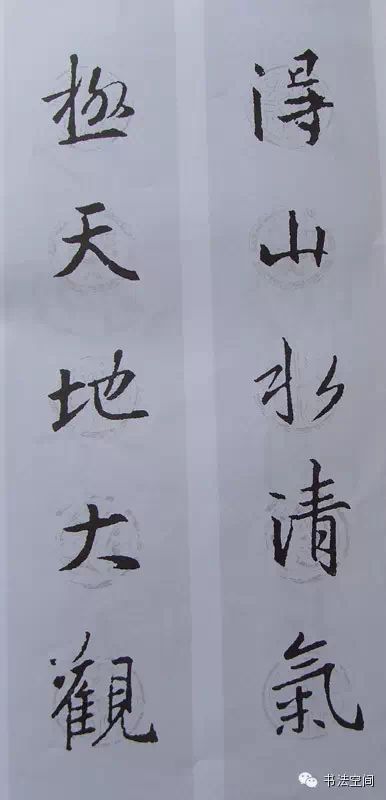 得山水清氣
極天地大觀
书法空间